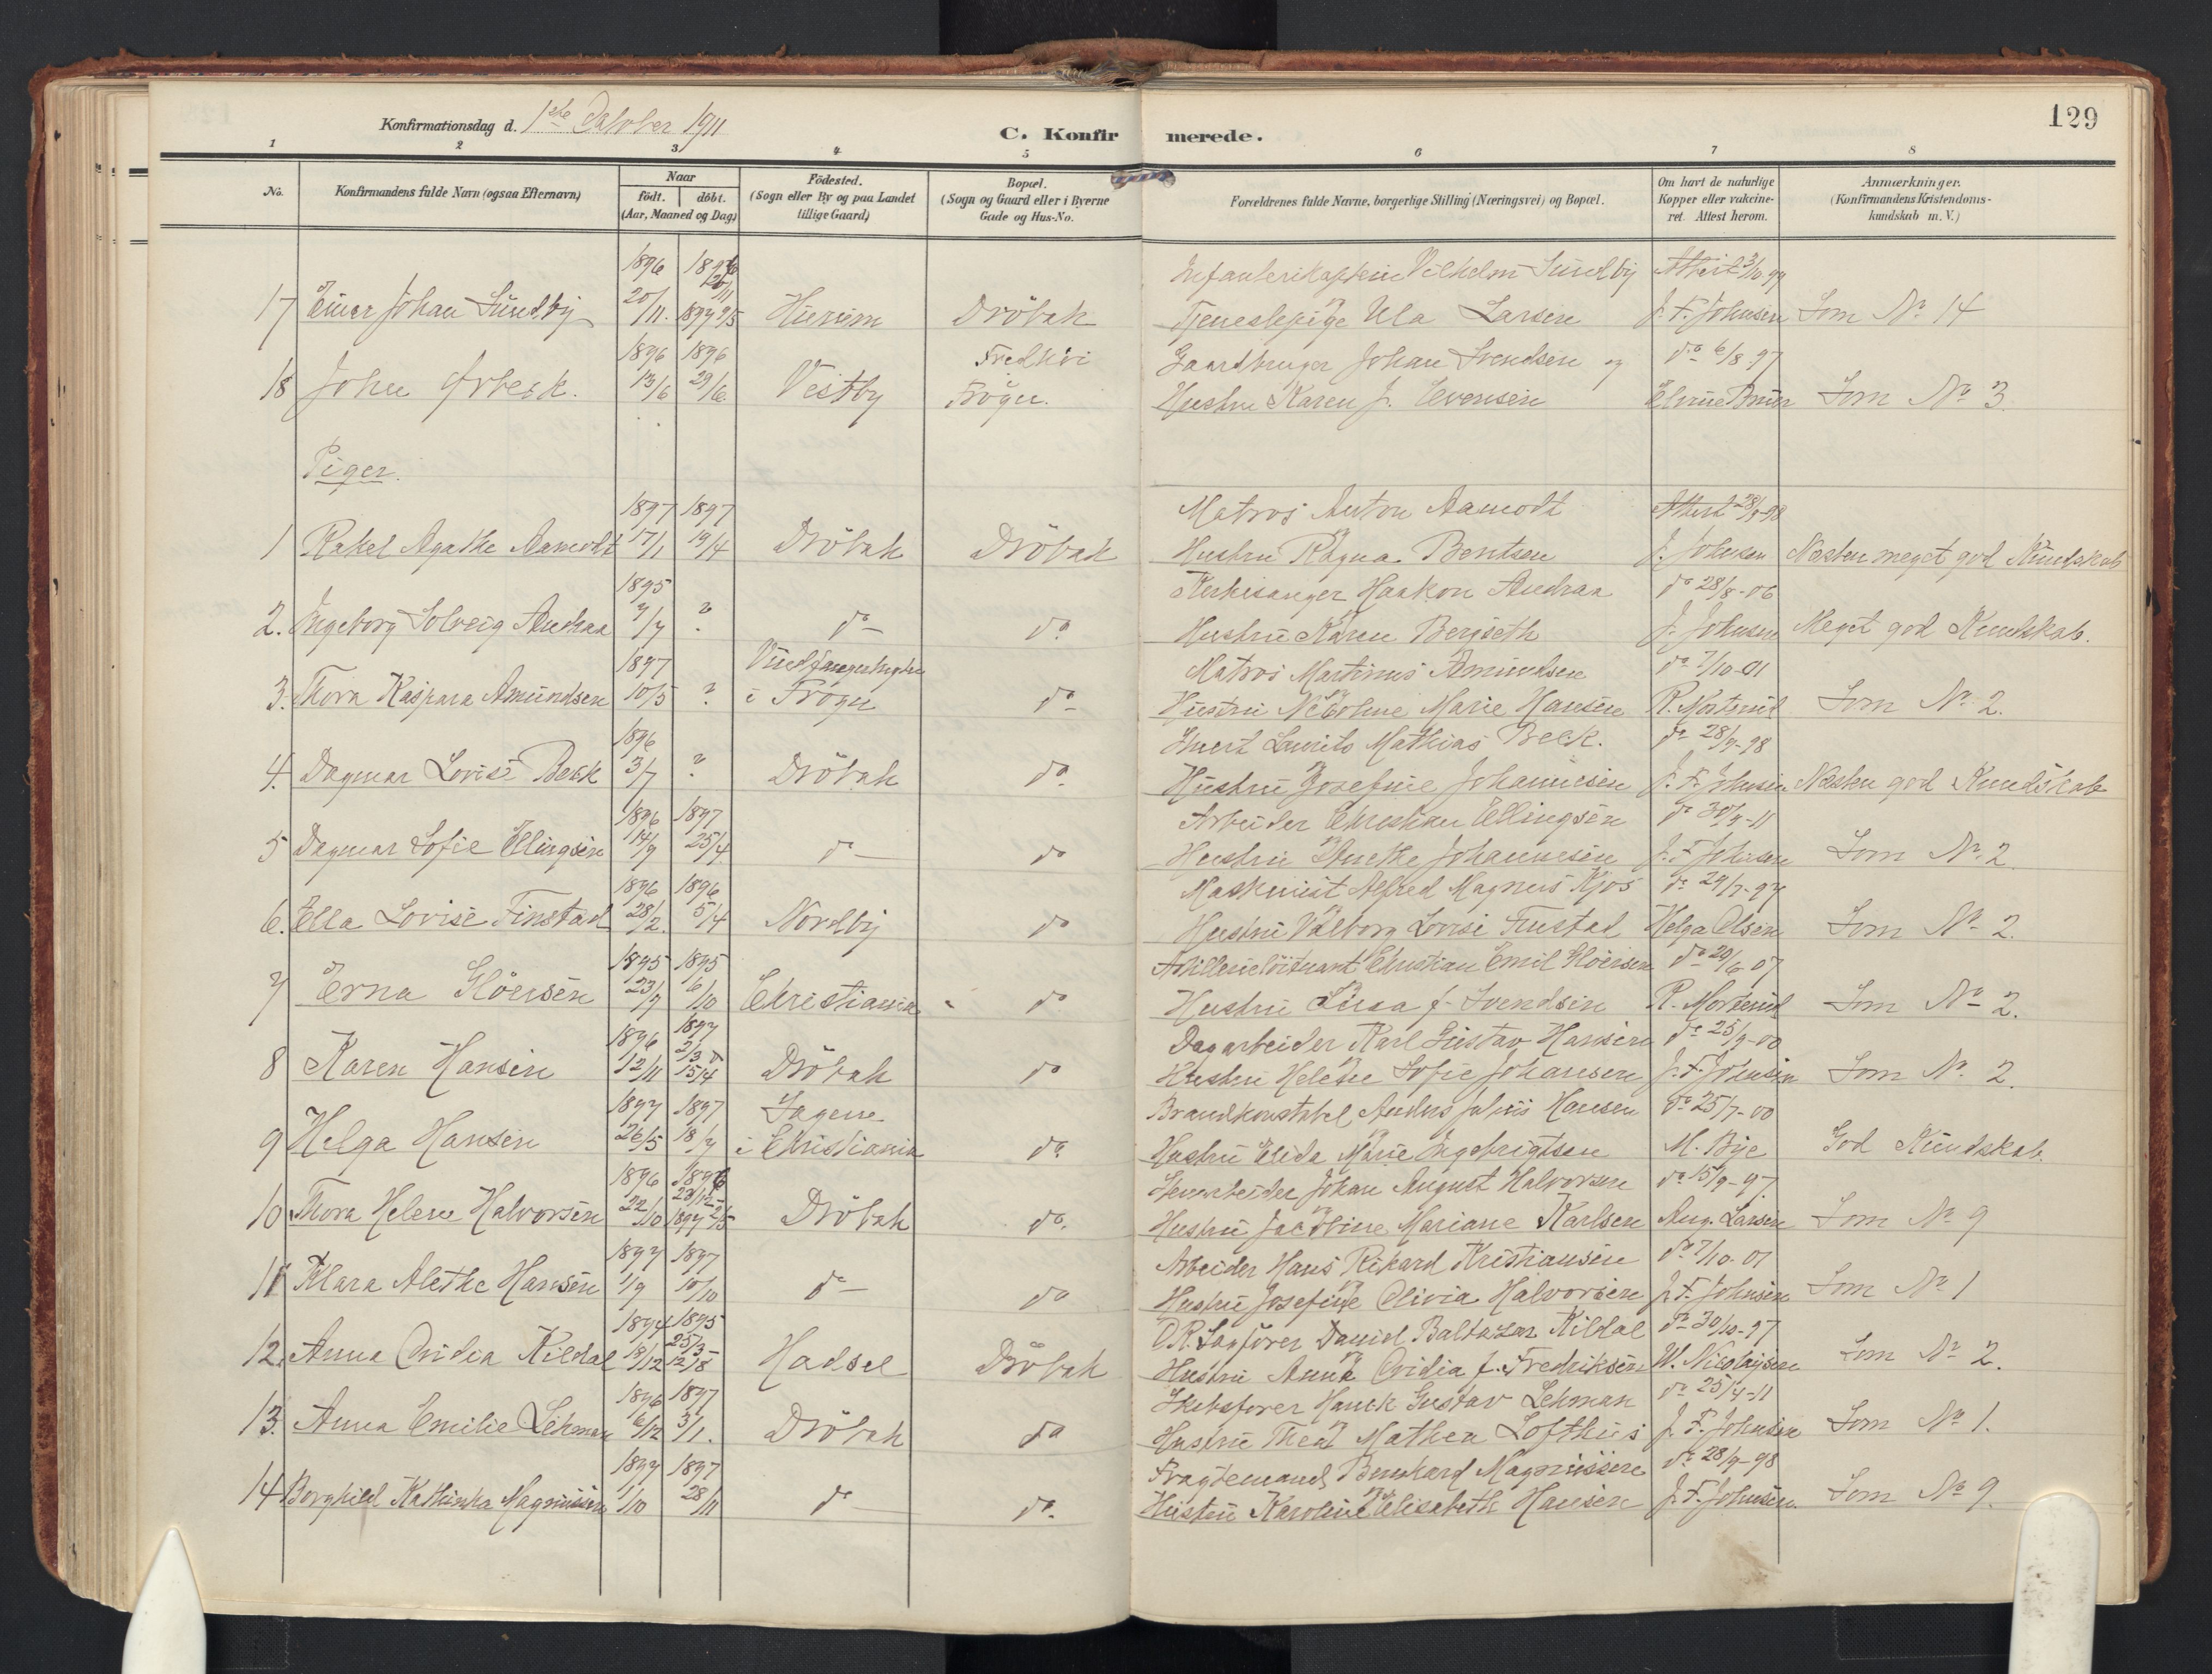 129
Konfirmationsdag d. 1ste Oktober 1911
C. Konfirmerede.
1 2 3 4 5 6 7 8
No.
Konfirmandens fulde Navn (ogsaa Efternavn)
Naar
födt. döbt.
(Aar, Maaned og Dag)
Födested.
(Sogn eller By og paa Landet
tillige Gaard)
Bopæl.
(Sogn og Gaard eller i Byerne
Gade og Hus-No.
Forældrenes fulde Navne, borgerlige Stilling (Næringsvei) og Bopæl.
Om havt de naturlige
Kopper eller vakcine-
ret. Attest herom.
Anmærkninger.
(Konfirmandens Kristendoms-
kundskab m. V.)
1896 1896 Infanterikaptein Vilhelm Sundby Attest 3/10 99
17 Einer Johan Sundby 20/11. 20/11 1897 9/5 Hurum Dröbak Tjenestepige Ula Larsen J. F. Johnsen Som No 14
1896 1896 Gaardbruger Johan Svendsen og do 6/8 97
18 John Orbeck. 13/6 29/6 Vestby Frogn. Hustru Karen J. Evensen Som No 3.
Piger.
1897 1897 Matros Anton Aamodt Attest 28/9-98
1 Rakel Agathe Aamodt 17/1 19/4 Dröbak Dröbak Hustru Ragna Bentsen J. Johnsen Næsten meget god Kundskab
1895 Kirkesanger Haakon Andraa do 28/8-06
2. Ingeborg Solveig Andraa 7/7 ? do do Hustru Karen Bergseth J. Johnsen Meget god Kundskab.
1897 Matros Martinus Amundsen do 7/10-01
3. Thora Kaspara Amundsen 10/5 ? i Frogn do Hustru Nicoline Marie Hansen R. Morterud Som No 2.
1896 Laurits Mathias Beck. do 28/9-98
4. Dagmar Lovise Beck 3/7 ? Dröbak do Hustru Josefine Johannesen J. F. Johnsen Næsten god Kundskab
1896 1897 Arbeider Christian Ellingsen do 30/9-11
5 Dagmar Sofie Ellingsen 14/9 25/4 do do Hustru Anethe Johannesen J. F. Johnsen Som No 2
1896 1896 Maskinist Alfred Magnus Kjos do 24/7-97
6. Ella Lovise Finstad 28/2. 5/4 Nordby do Hustru Valborg Lovise Finstad Helga Olsen Som No 2.
1895 1895 Artilleriløitnant Christian Emil Gløersen do 20/6 07
7 Erna Gløersen 23/9 6/10 Christiania do Hustru f. Svendsen R. Morterud Som No 2.
1896 1897 Dagarbeider Karl Gustav Hansen do 25/9-00
8 Karen Hansen 12/11 2/3 15/4 Dröbak do Hustru Helene Sofie Johansen J. F. Johnsen Som No 2.
1897 1897 Sagene Brandkonstabel Anders Julius Hansen do 25/7-00
9 Helga Hansen 26/5 18/7 i Christiania do. Hustru Elida Marie Ingebrigtsen M. Bye God Kundskab.
1896 1896 Johan August Halvorsen do 15/9-97.
10 Thora Helene Halvorsen 22/10 23/12 1897 Dröbak do. Hustru Jacobine Mariane Karlsen Aug. Larsen Som No 9
1897 1897 Arbeider Hans Rikard Kristiansen do 7/10-01
11 Klara Alethe Hansen 1/9 10/10 do do Hustru Josefine Olivia Halvorsen J. F. Johnsen Som No 1
1894 1895 O.R. Sagfører Daniel Baltazar Kildal do 30/10-97
12. Anna Ovidia Kildal 18/12 25/3 12/8 Hadsel Dröbak Hustru Anna Ovidia f. Fredriksen W. Nicolaysen Som No 2.
1896 1897 Skibsfører Hauck Gustav Lehman do 25/4-11
13. Anna Emilie Lehman 16/12 3/1. Dröbak do Hustru Thea Mathea Lofthus J. F. Johnsen Som No 1.
1897 1897 Fragtemand Bernhard Magnussen do 28/9-98
14 Borghild Kathinka Magnussen 1/10 28/11 do do. Hustru Karoline Elisabeth Hansen J. F. Johnsen Som No 9.